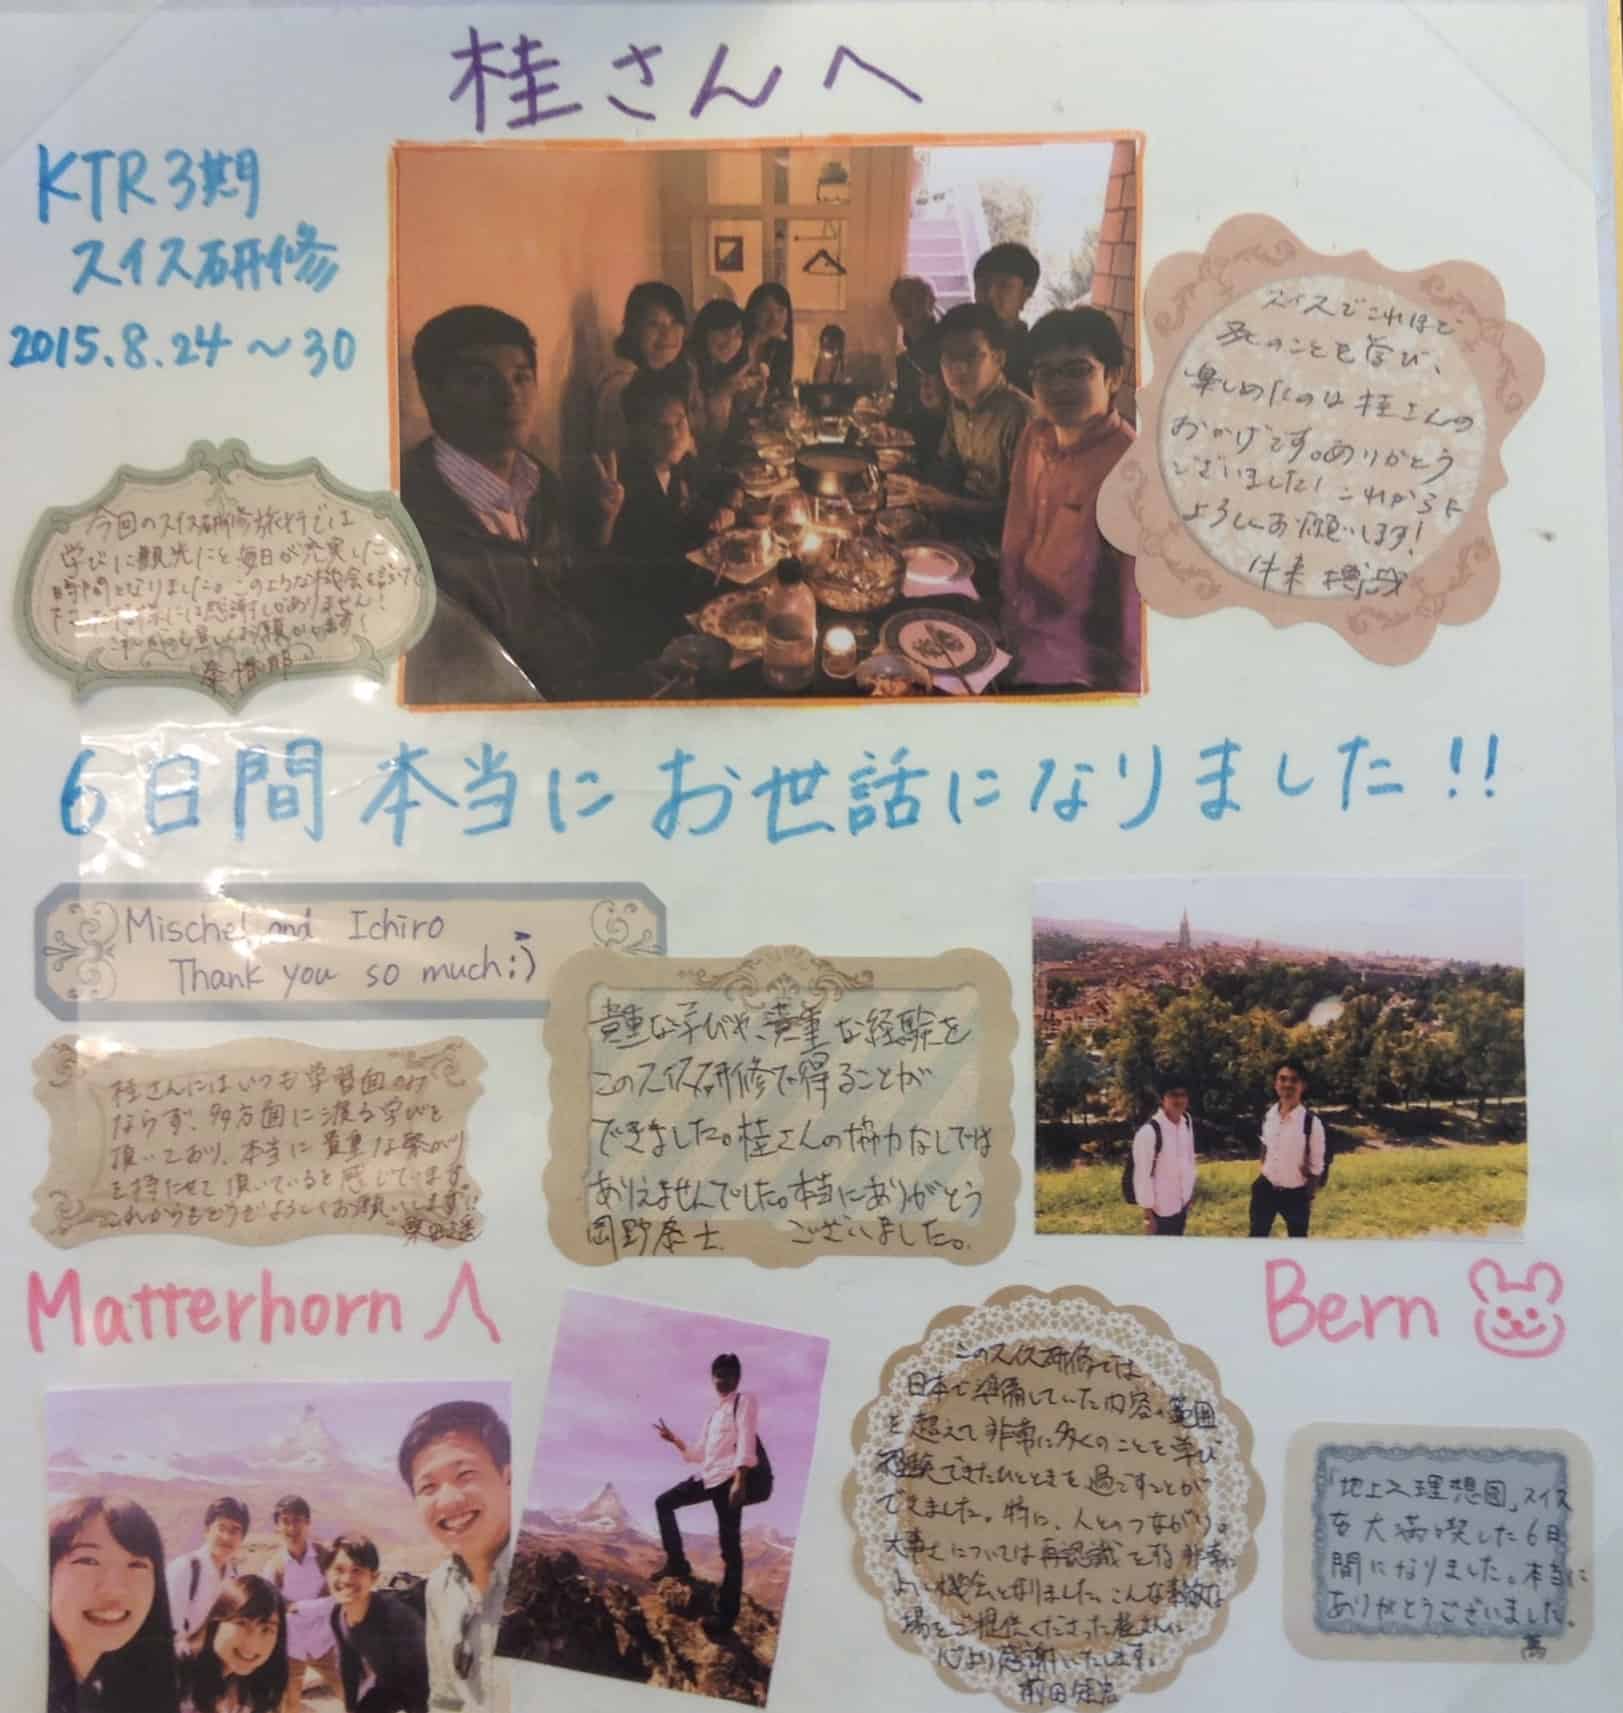 桂さんへ
KTR3期
スイス研修
2015.8.24～30
スイスでこれほど
多くのことを学び、
楽しめたのは桂さんの
おかげです。ありがとう
ございました！これからも
よろしくお願いします！
今回のスイス研修旅行では
学びに観光にと毎日が充実した
時間となりました。このような機会を
には感謝しかありません！
これからも宜しくお願いします！
6日間本当にお世話になりました!!
Mischel and Ichiro
Thank you so much:)
桂さんにはいつも学習面のみ
ならず、多方面に渡る学びを
頂いており、本当に貴重な繋がり
を持たせて頂いていると感じています。
これからもどうぞよろしくお願いします!!
貴重な学びや、貴重な経験を
このスイス研修で得ることが
できました。桂さんの協力なしでは
ありえませんでした。本当にありがとう
ございました。
岡野泰士
Matterhorn
Bern
このスイス研修では
日本で準備していた内容の範囲
を超えて非常に多くのことを学び
経験できたひとときを過ごすことが
できました。特に、人とのつながりの
大事さについては再認識する非常に
よい機会となりました。こんな素敵な
場をご提供くださった桂さんに
心より感謝いたします。
「地上の理想国」スイス
を大満喫した6日
間になりました。本当に
ありがとうございました。
萬